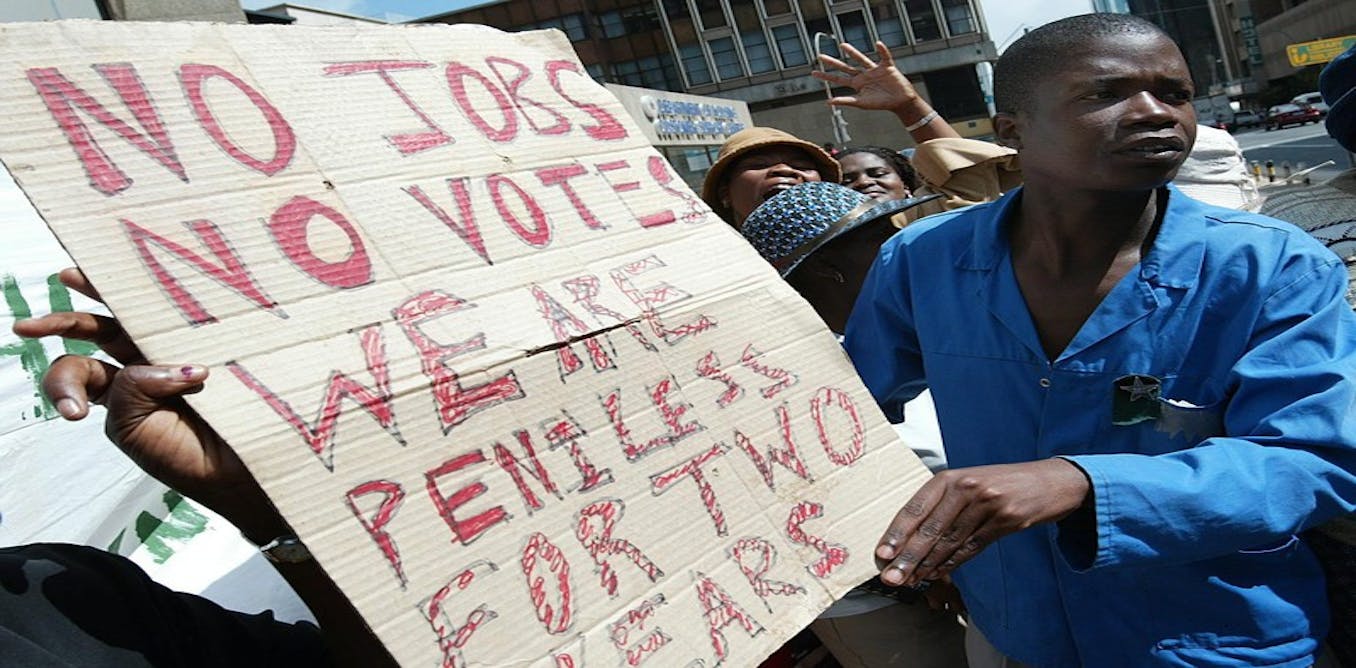 NO JOBS
NO VOTES
WE ARE
PENILESS
FOR TWO
YEARS
LIBRARY